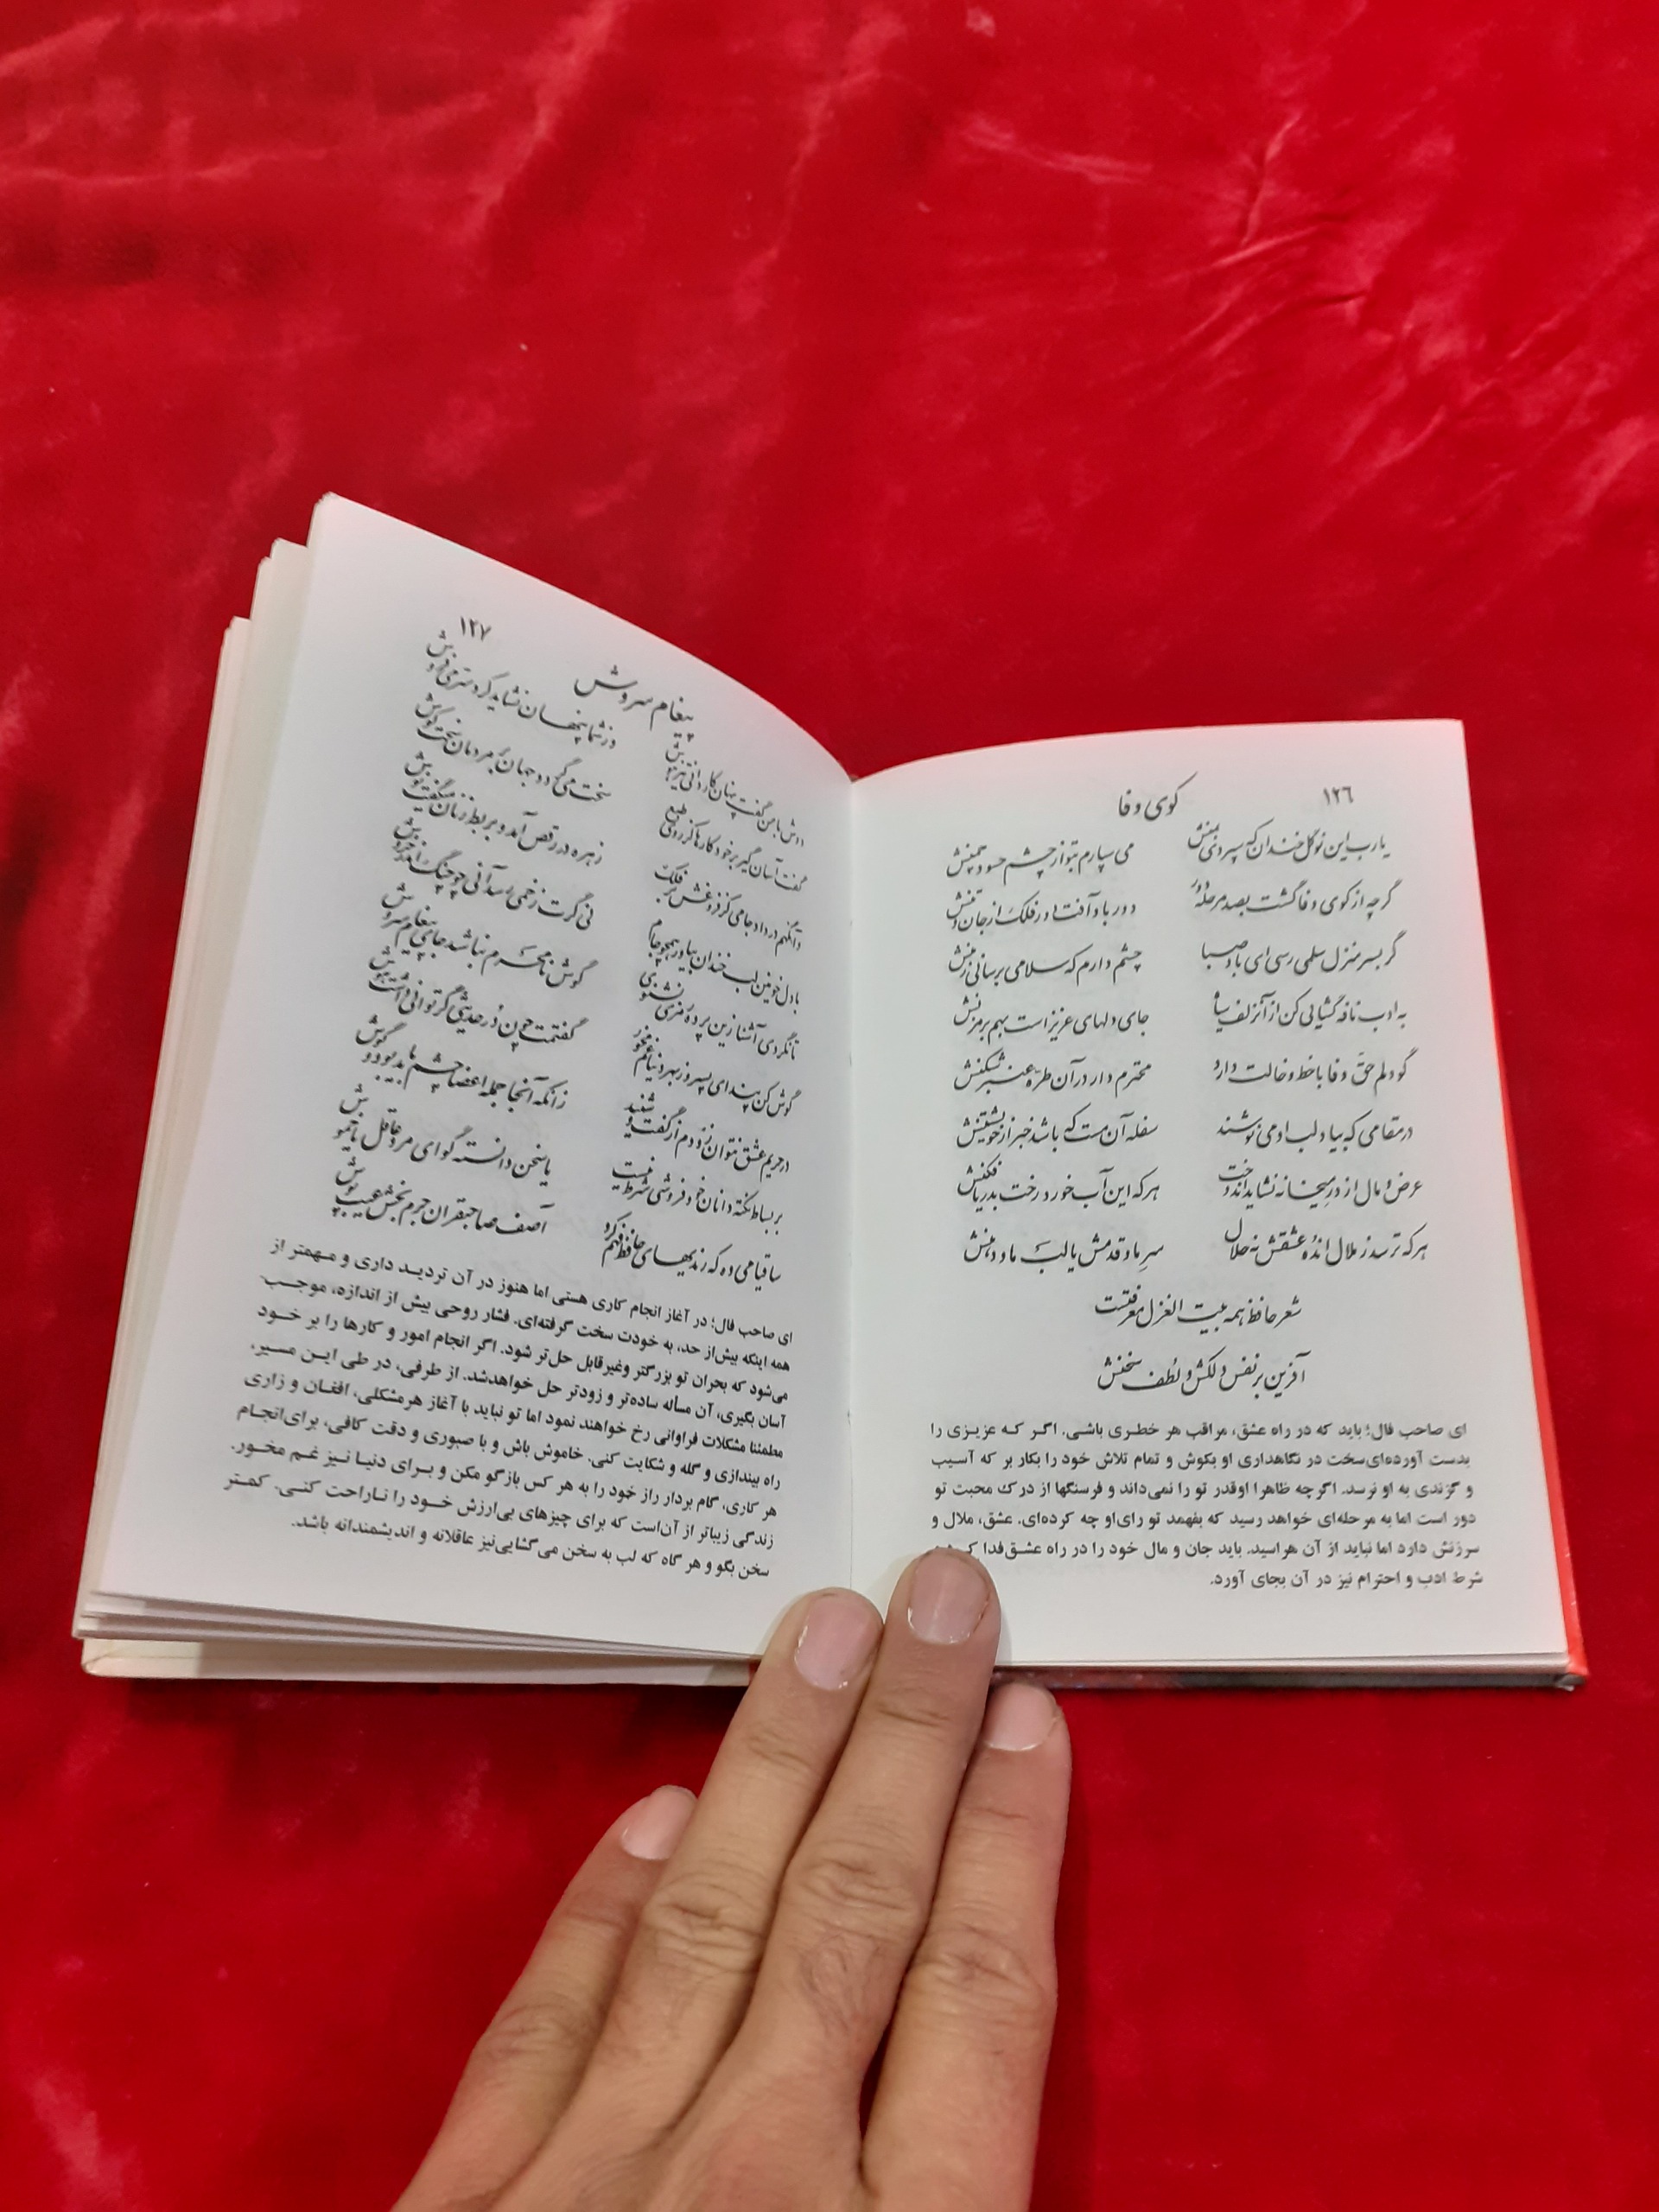 ۱۲۶
کوی وفا
یارب این نوگل خندان که سپردی بمنش
می سپارم بتو از چشم حسود چمنش
گرچه از کوی وفا گشت بصد مرحله دور
دور باد آفت دور فلک از جان و تنش
گر بسر منزل سلمی رسی ای باد صبا
چشم دارم که سلامی برسانی ز منش
به ادب نافه گشایی کن از آن زلف سیاه
جای دلهای عزیز است بهم بر مزنش
گو دلم حق وفا با خط و خالت دارد
محترم دار در آن طره عنبر شکنش
در مقامی که بیاد لب او می نوشند
سفله آن مست که باشد خبر از خویشتنش
عرض و مال از در میخانه نشاید اندوخت
هر که این آب خورد رخت بدریا فکنش
هر که ترسد ز ملال انده عشقش نه حلال
سر ما و قدمش یا لب ما و دهنش
شعر حافظ همه بیت الغزل معرفتست
آفرین بر نفس دلکش و لطف سخنش
ای صاحب فال؛ باید که در راه عشق، مراقب هر خطری باشی. اگر که عزیزی را
بدست آورده‌ای‌سخت در نگاهداری او بکوش و تمام تلاش خود را بکار بر که آسیب
و گزندی به او نرسد. اگرچه ظاهرا اوقدر تو را نمی‌داند و فرسنگها از درك محبت تو
دور است اما به مرحله‌ای خواهد رسید که بفهمد تو رای‌او چه کرده‌ای. عشق، ملال و
سرزنش دارد اما نباید از آن هراسید. باید جان و مال خود را در راه عشق‌فدا
شرط ادب و احترام نیز در آن بجای آورد.
۱۲۷
پیغام سروش
دوش با من گفت پنهان کاردانی تیزهوش
وز شما پنهان نشاید کرد سر می فروش
گفت آسان گیر بر خود کارها کز روی طبع
سخت می گردد جهان بر مردمان سخت کوش
وآنگهم در داد جامی کز فروغش بر فلک
زهره در رقص آمد و بربط زنان میگفت نوش
با دل خونین لب خندان بیاور همچو جام
نی گرت زخمی رسد آئی چو چنگ اندر خروش
تا نگردی آشنا زین پرده رمزی نشنوی
گوش نامحرم نباشد جای پیغام سروش
گوش کن پند ای پسر وز بهر دنیا غم مخور
گفتمت چون در حدیثی گر توانی داشت هوش
در حریم عشق نتوان زد دم از گفت و شنید
زانکه آنجا جمله اعضا چشم باید بود و گوش
بر بساط نکته دانان خود فروشی شرط نیست
یا سخن دانسته گو ای مرد عاقل یا خموش
ساقیا می ده که رندیهای حافظ فهم کرد
آصف صاحبقران جرم بخش عیب پوش
ای صاحب فال؛ در آغاز انجام کاری هستی اما هنوز در آن تردید داری و مهمتر از
همه اینکه بیش‌از حد، به خودت سخت گرفته‌ای. فشار روحی بیش از اندازه، موجب
می‌شود که بحران تو بزرگتر وغیرقابل حل‌تر شود. اگر انجام امور و کارها را بر خود
آسان بگیری، آن مسأله ساده‌تر و زودتر حل خواهدشد. از طرفی، در طی این مسیر،
مطمئنا مشکلات فراوانی رخ خواهند نمود اما تو نباید با آغاز هرمشکلی، افغان و زاری
راه بیندازی و گله و شکایت کنی. خاموش باش و با صبوری و دقت کافی، برای‌انجام
هر کاری، گام بردار راز خود را به هر کس بازگو مکن و برای دنیا نیز غم مخور.
زندگی زیباتر از آن‌است که برای چیزهای بی‌ارزش خود را ناراحت کنی. کمتر
سخن بگو و هر گاه که لب به سخن می‌گشایی‌نیز عاقلانه و اندیشمندانه باشد.